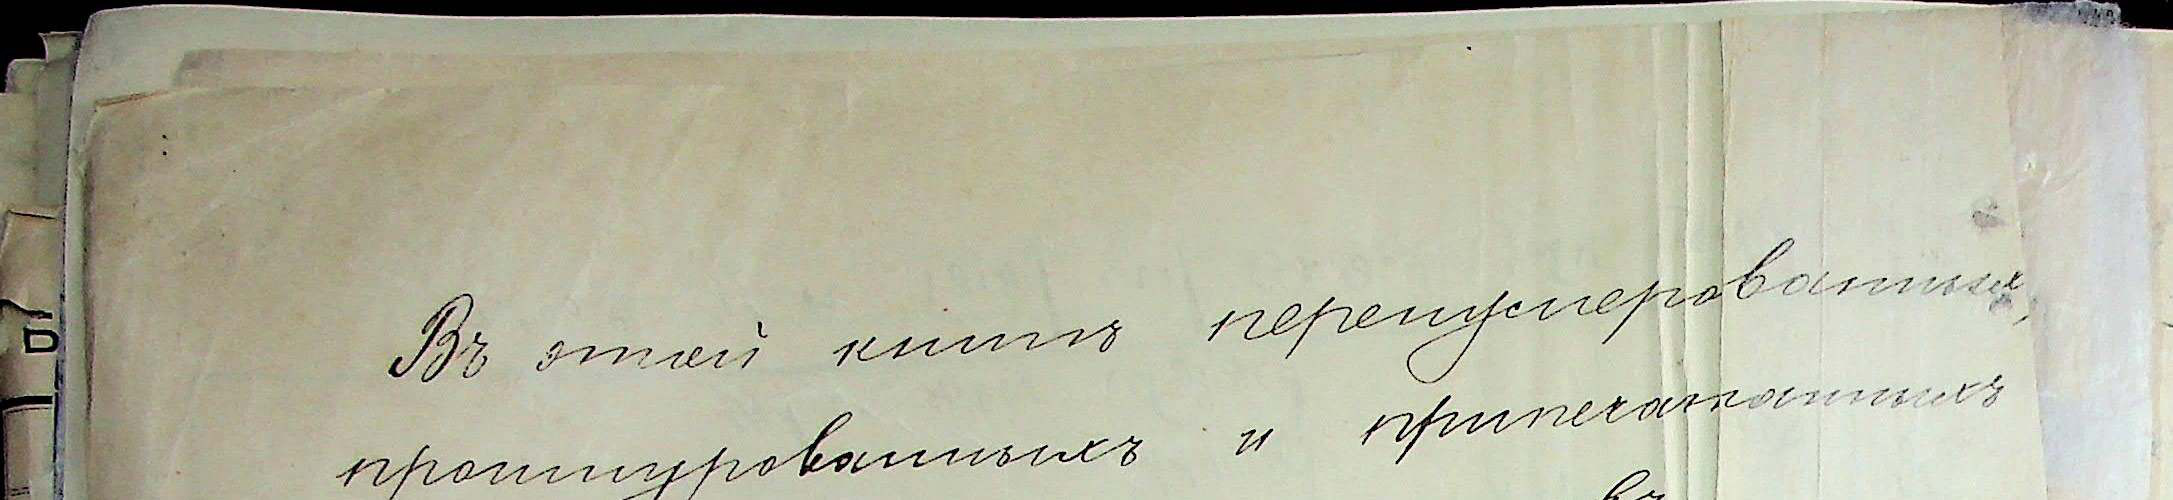 Въ этой книгѣ перенумерованныхъ,
прошнурованныхъ и припечатанныхъ
въ